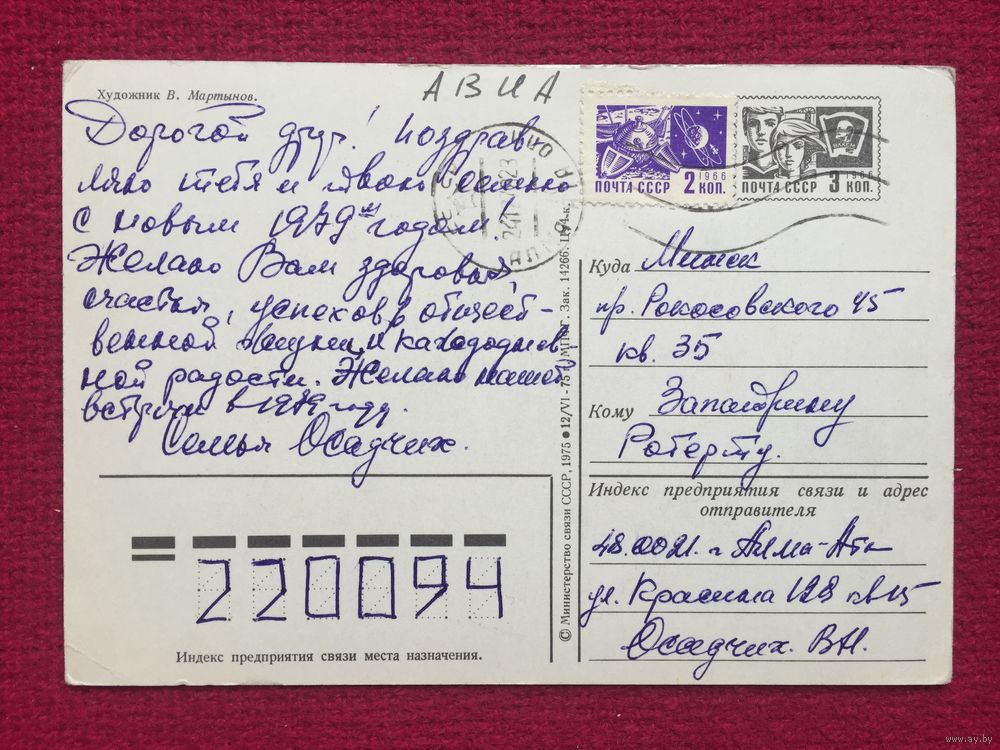 Художник В. Мартынов.
АВИА
Дорогой друг! Поздрав
ляю тебя и твою семью
с новым 1979 ым годом!
Желаю Вам здоровья,
счастья, успехов в общест-
венной жизни, и каждоднев-
ной радости. Желаю нашей
встречи в 1979 году.
Семья Осадчих.
ПОЧТА СССР 2 КОП. 1966
ПОЧТА СССР 3 КОП. 1966
ВЛКСМ
Куда Минск
пр. Рокосовского 45
кв. 35
Кому
Роберту.
Индекс предприятия связи и адрес
отправителя
48.0021. г Алма-Ата
ул. 128 кв 15
Осадчих. В.Н.
220094
Индекс предприятия связи места назначения.
© Министерство связи СССР, 1975 ● 12/VI-75 Зак. 14266.
www.ay.by